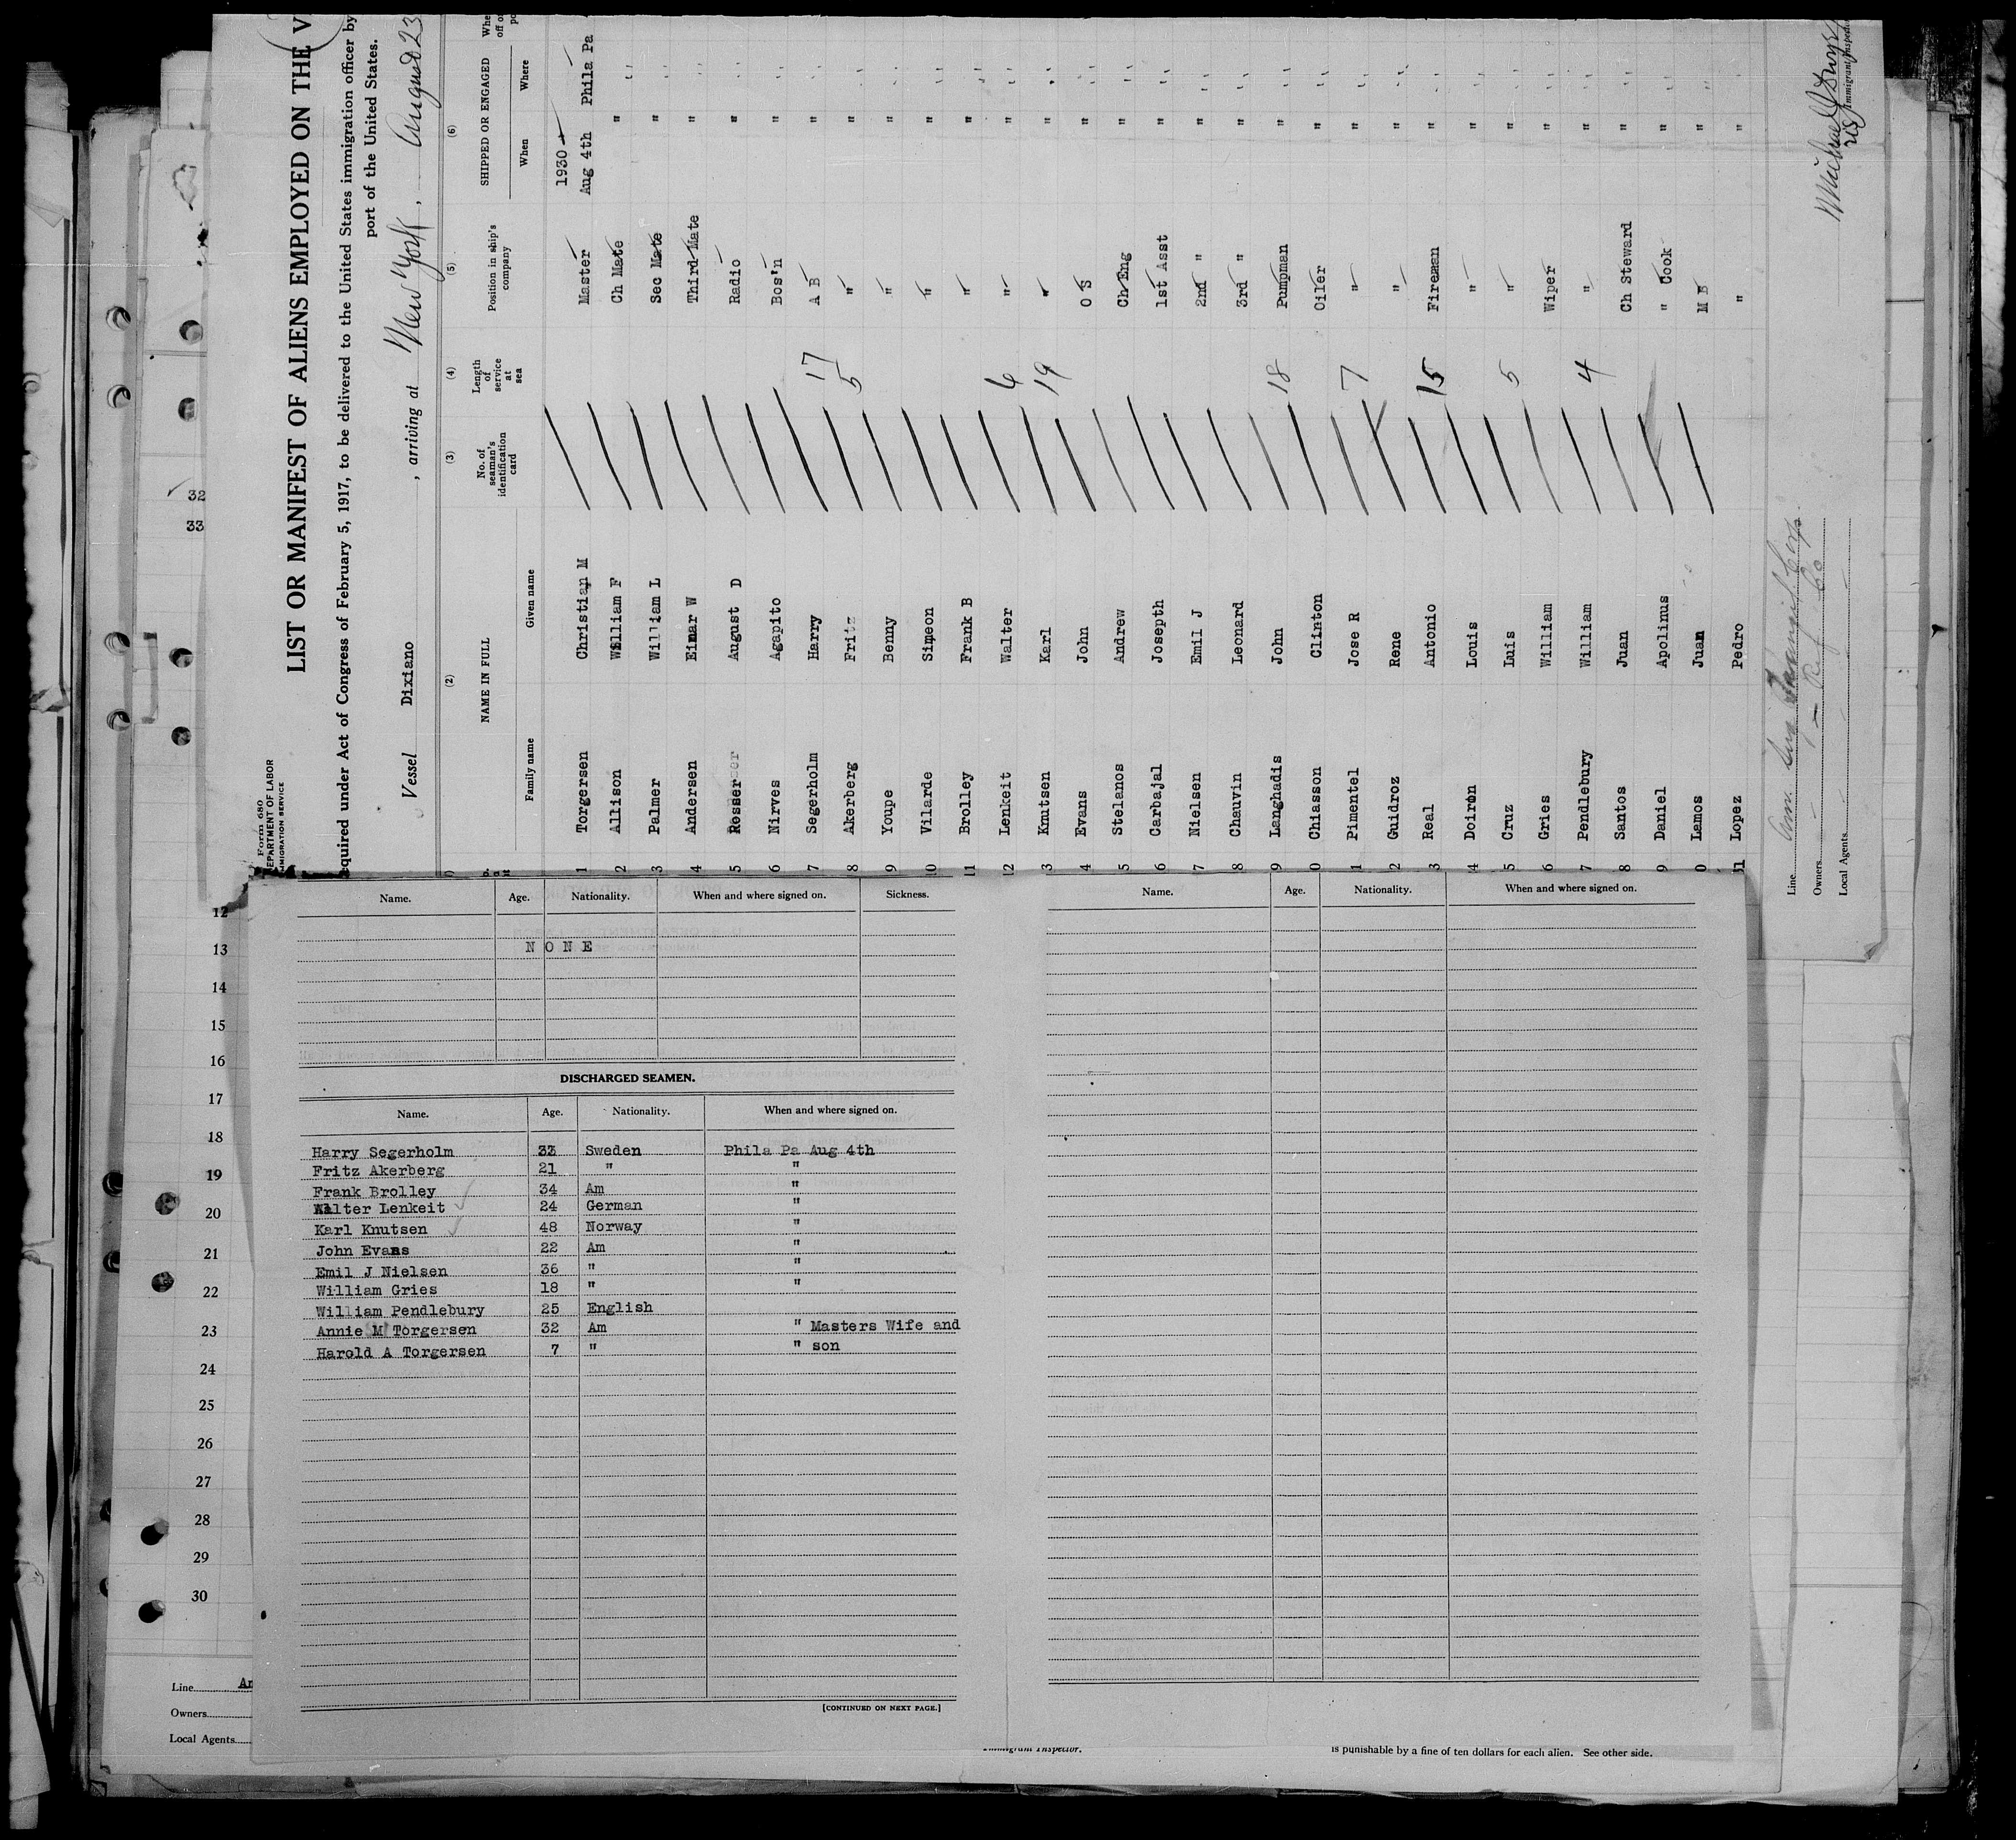 Form 680
DEPARTMENT OF LABOR
IMMIGRATION SERVICE
LIST OR MANIFEST OF ALIENS EMPLOYED ON THE V
equired under Act of Congress of February 5, 1917, to be delivered to the United States immigration officer by
port of the United States.
Vessel Dixiano , arriving at New York, August 23
(2) (3) (4) (5) (6)
NAME IN FULL No. of seaman's identification card Length of service at sea Position in ship's company SHIPPED OR ENGAGED
Family name Given name When Where
1930
1 Torgersen Christian M Master Aug 4th Phila Pa
2 Allison William F Ch Mate " "
3 Palmer William L Sec Mate " "
4 Andersen Einar W Third Mate " "
5 Rosser August D Radio " "
6 Nirves Agapito Bos'n " "
7 Segerholm Harry 17 A B " "
8 Akerberg Fritz 5 " " "
9 Youpe Benny " " "
10 Vilarde Simeon " " "
11 Brolley Frank B " " "
12 Lenkeit Walter 6 " " "
3 Knutsen Karl 19 " " "
4 Evans John O S " "
5 Stelanos Andrew Ch Eng " "
6 Carbajal Josepth 1st Asst " "
7 Nielsen Emil J 2nd " " "
8 Chauvin Leonard 3rd " " "
9 Langhadis John 18 Pumpman " "
0 Chiasson Clinton Oiler " "
1 Pimentel Jose R 7 " " "
2 Guidroz Rene " " "
3 Real Antonio 15 Fireman " "
4 Doiron Louis " " "
5 Cruz Luis 5 " " "
6 Gries William Wiper " "
7 Pendlebury William 4 " " "
8 Santos Juan Ch Steward " "
9 Daniel Apolinus " Cook " "
0 Lamos Juan M B " "
31 Lopez Pedro " "
Line
Owners
Local Agents
Immigrant Inspector
32
33
Name. Age. Nationality. When and where signed on. Sickness.
NONE
DISCHARGED SEAMEN.
Name. Age. Nationality. When and where signed on.
Harry Segerholm 33 Sweden Phila Pa Aug 4th
Fritz Akerberg 21 " "
Frank Brolley 34 Am "
Walter Lenkeit 24 German "
Karl Knutsen 48 Norway "
John Evans 22 Am "
Emil J Nielsen 36 " "
William Gries 18 " "
William Pendlebury 25 English
Annie M Torgersen 32 Am " Masters Wife and
Harold A Torgersen 7 " " son
[CONTINUED ON NEXT PAGE.]
Name. Age. Nationality. When and where signed on.
12
13
14
15
16
17
18
19
20
21
22
23
24
25
26
27
28
29
30
Line An
Owners
Local Agents
Immigrant Inspector.
is punishable by a fine of ten dollars for each alien. See other side.